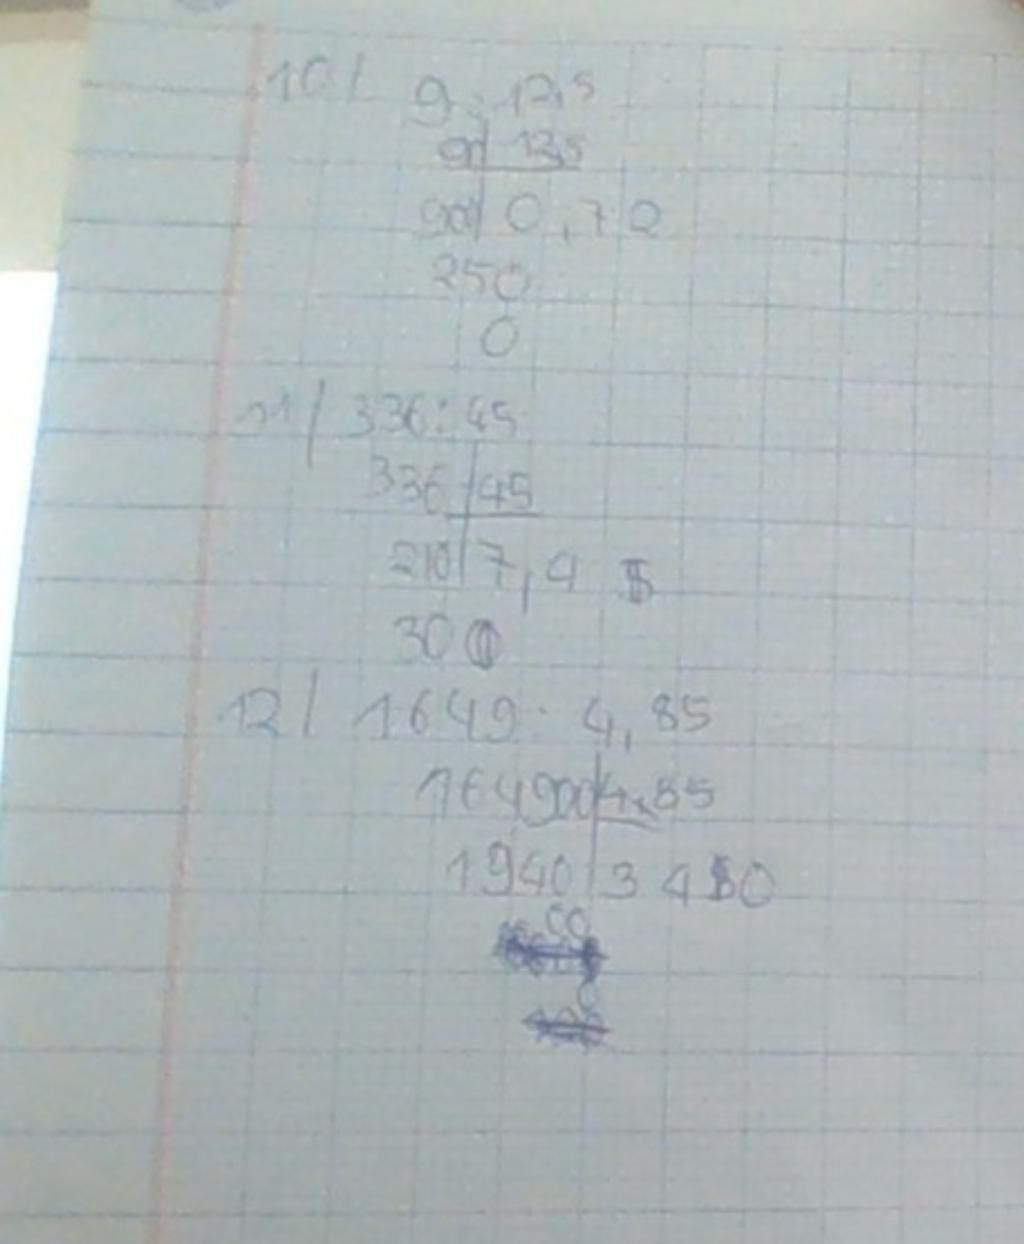 10/ 9 : 12,5
90 12,5
900 0,72
250
0
11/ 336 : 45
336 45
210 7,4
30
12/ 1649 : 4,85
164900 4,85
1940 3 4 0
00
0